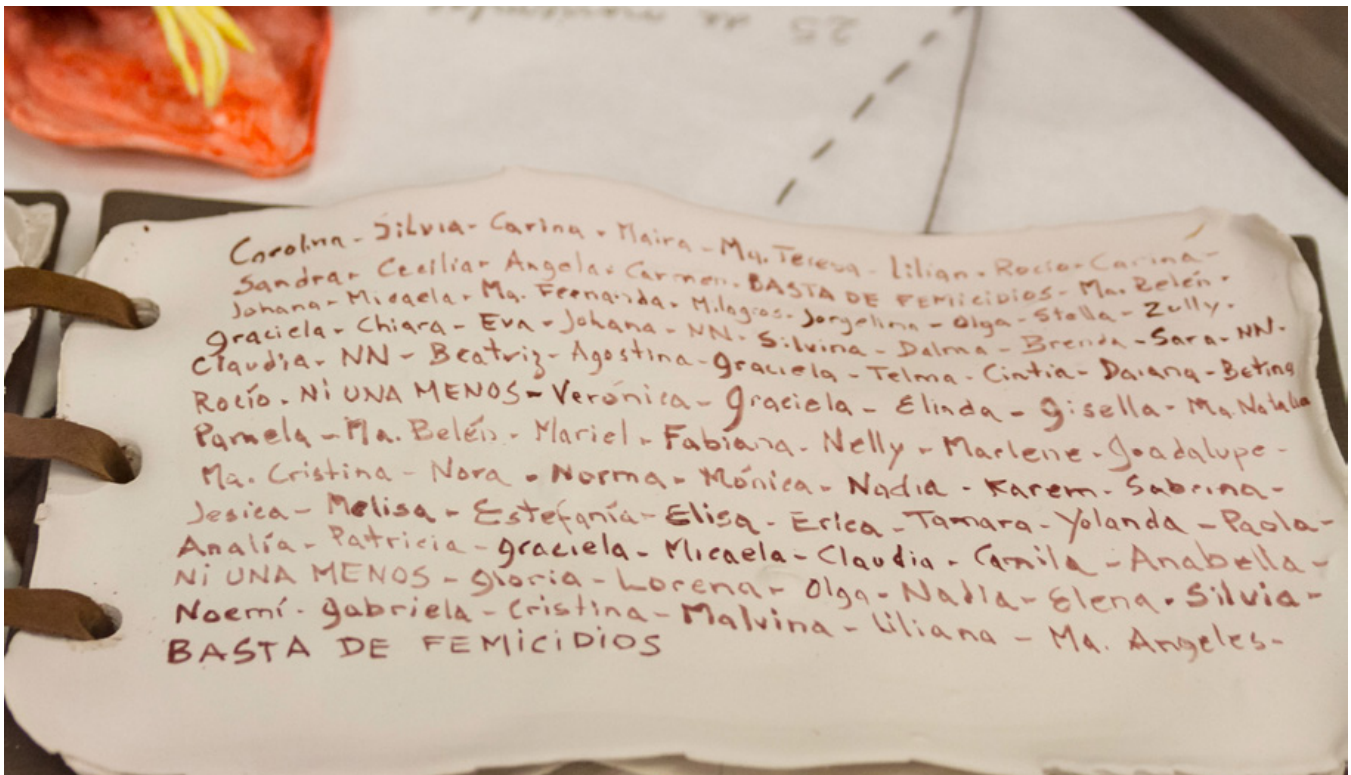 25 de noviembre
Carolina - Silvia - Carina - Maira - Ma. Teresa - Lilian - Rocío - Carina -
Sandra - Cecilia - Angela - Carmen - BASTA DE FEMICIDIOS - Ma. Belén -
Johana - Micaela - Ma. Fernanda - Milagros - Jorgelina - Olga - Stella - Zully -
Graciela - Chiara - Eva - Johana - NN - Silvina - Dalma - Brenda - Sara - NN -
Claudia - NN - Beatriz - Agostina - Graciela - Telma - Cintia - Daiana - Betina
Rocío - Ni UNA MENOS - Verónica - Graciela - Elinda - Gisella - Ma. Natalia
Pamela - Ma. Belén - Mariel - Fabiana - Nelly - Marlene - Guadalupe -
Ma. Cristina - Nora - Norma - Mónica - Nadia - Karem - Sabrina -
Jesica - Melisa - Estefanía - Elisa - Erica - Tamara - Yolanda - Paola -
Analía - Patricia - Graciela - Micaela - Claudia - Camila - Anabella -
Ni UNA MENOS - Gloria - Lorena - Olga - Nadia - Elena - Silvia -
Noemí - Gabriela - Cristina - Malvina - Liliana - Ma. Angeles -
BASTA DE FEMiCiDiOS